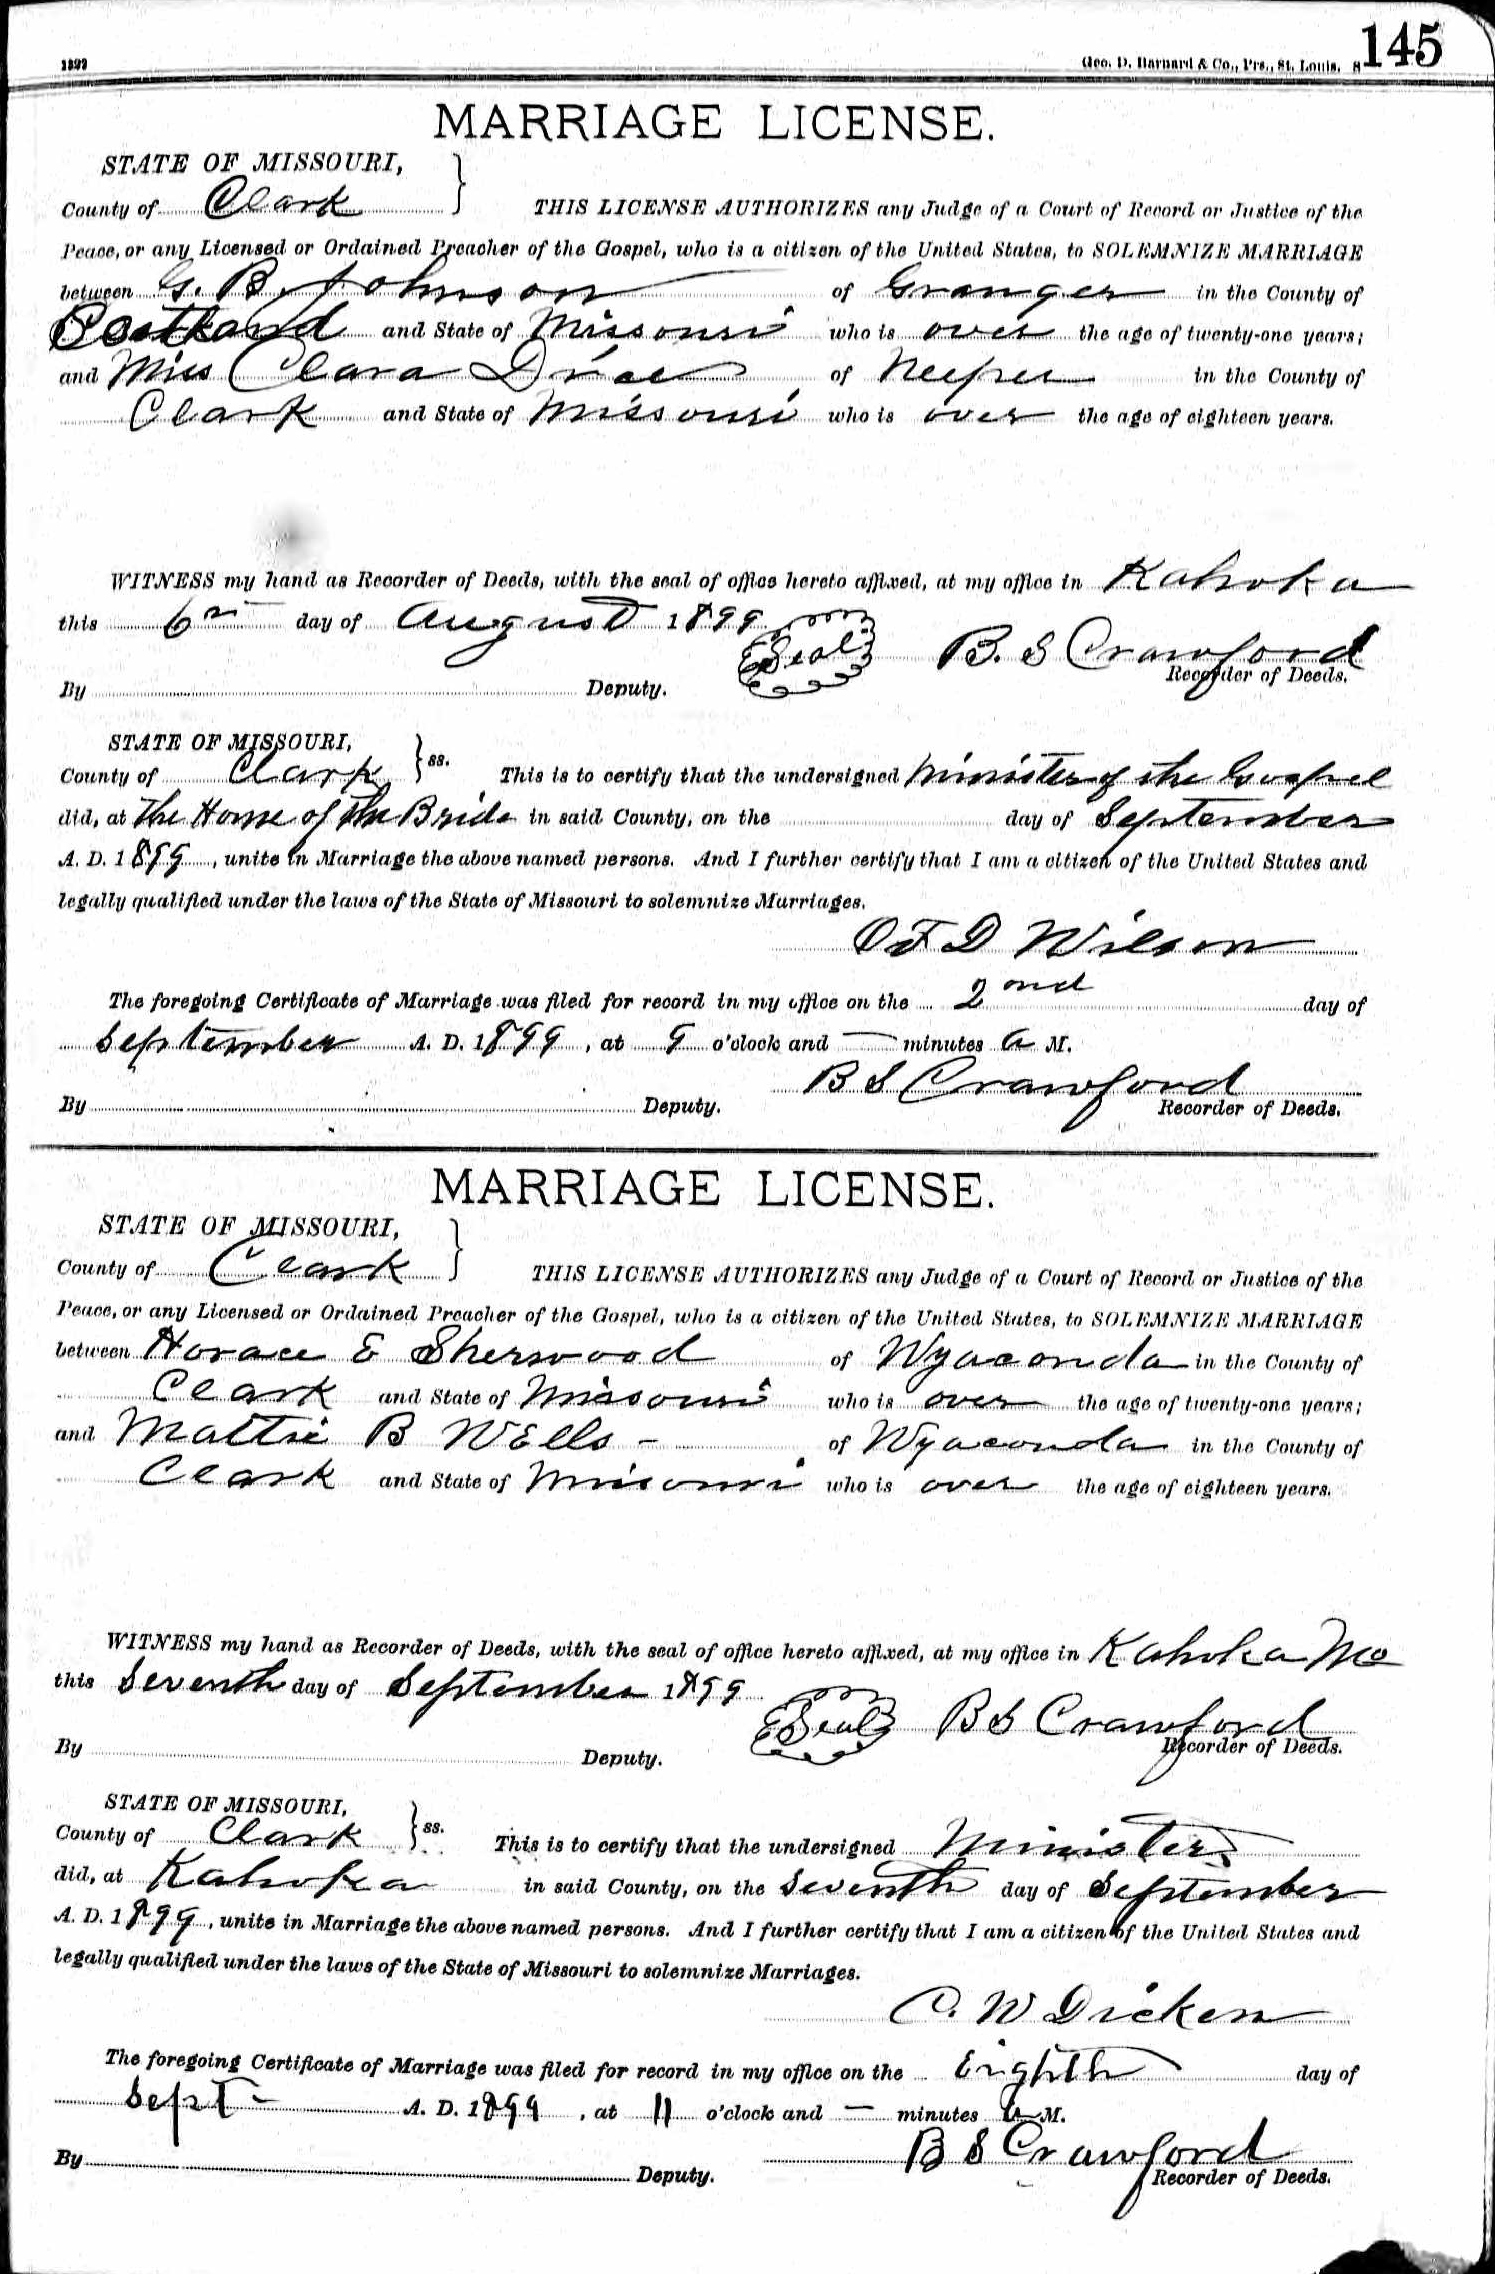 1899
Geo. D. Barnard & Co., Prs., St. Louis. 145
MARRIAGE LICENSE.
STATE OF MISSOURI,
County of Clark THIS LICENSE AUTHORIZES any Judge of a Court of Record or Justice of the
Peace, or any Licensed or Ordained Preacher of the Gospel, who is a citizen of the United States, to SOLEMNIZE MARRIAGE
between G. B. Johnson of Granger in the County of
Scotland and State of Missouri who is over the age of twenty-one years;
and Miss Clara of Neeper in the County of
Clark and State of Missouri who is over the age of eighteen years.
WITNESS my hand as Recorder of Deeds, with the seal of office hereto affixed, at my office in Kahoka
this day of August 1899 Seal B. S Crawford
Recorder of Deeds.
By Deputy.
STATE OF MISSOURI,
County of Clark ss. This is to certify that the undersigned Minister of the Gospel
did, at The Home of The Bride in said County, on the day of September
A. D. 1899, unite in Marriage the above named persons. And I further certify that I am a citizen of the United States and
legally qualified under the laws of the State of Missouri to solemnize Marriages.
D Wilson
The foregoing Certificate of Marriage was filed for record in my office on the 2ond day of
September A. D. 1899, at 9 o'clock and — minutes a M.
B S Crawford
By Deputy. Recorder of Deeds.
MARRIAGE LICENSE.
STATE OF MISSOURI,
County of Clark THIS LICENSE AUTHORIZES any Judge of a Court of Record or Justice of the
Peace, or any Licensed or Ordained Preacher of the Gospel, who is a citizen of the United States, to SOLEMNIZE MARRIAGE
between Horace E Sherwood of Wyaconda in the County of
Clark and State of Missouri who is over the age of twenty-one years;
and Mattie B Wells - of Wyaconda in the County of
Clark and State of Missouri who is over the age of eighteen years.
WITNESS my hand as Recorder of Deeds, with the seal of office hereto affixed, at my office in Kahoka Mo
this Seventh day of September 1899 Seal B S Crawford
Recorder of Deeds.
By Deputy.
STATE OF MISSOURI,
County of Clark ss. This is to certify that the undersigned Minister
did, at Kahoka in said County, on the Seventh day of September
A. D. 1899, unite in Marriage the above named persons. And I further certify that I am a citizen of the United States and
legally qualified under the laws of the State of Missouri to solemnize Marriages.
C. W Dicken
The foregoing Certificate of Marriage was filed for record in my office on the Eighth day of
Sept - A. D. 1899, at 11 o'clock and — minutes a M.
B S Crawford
By Deputy. Recorder of Deeds.